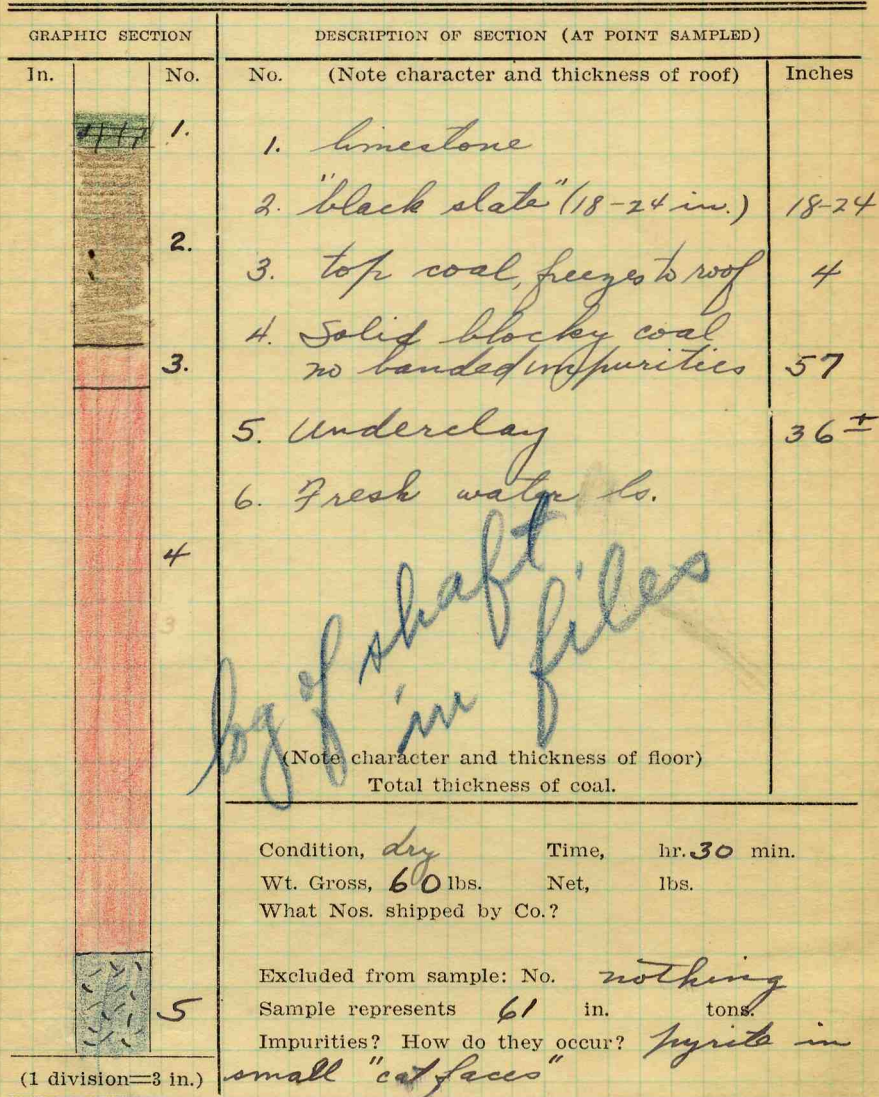 GRAPHIC SECTION
DESCRIPTION OF SECTION (AT POINT SAMPLED)
In. No.
No. (Note character and thickness of roof) Inches
1.
1. limestone
2. "black slate" (18-24 in.) 18-24
2.
3. top coal, freezes to roof 4
4. Solid blocky coal
3.
no banded impurities 57
5. Underclay 36±
6. Fresh water ls.
4
log of shaft
in files
(Note character and thickness of floor)
Total thickness of coal.
Condition, dry Time, hr. 30 min.
Wt. Gross, 60 lbs. Net, lbs.
What Nos. shipped by Co.?
Excluded from sample: No. nothing
5
Sample represents 61 in. tons.
Impurities? How do they occur? pyrite in
small "cat faces"
(1 division=3 in.)